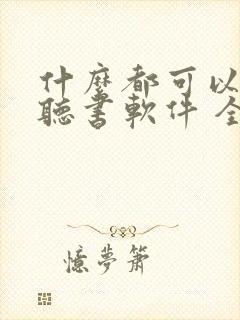 什麼都可以
聽書軟件 全
憶夢蕭